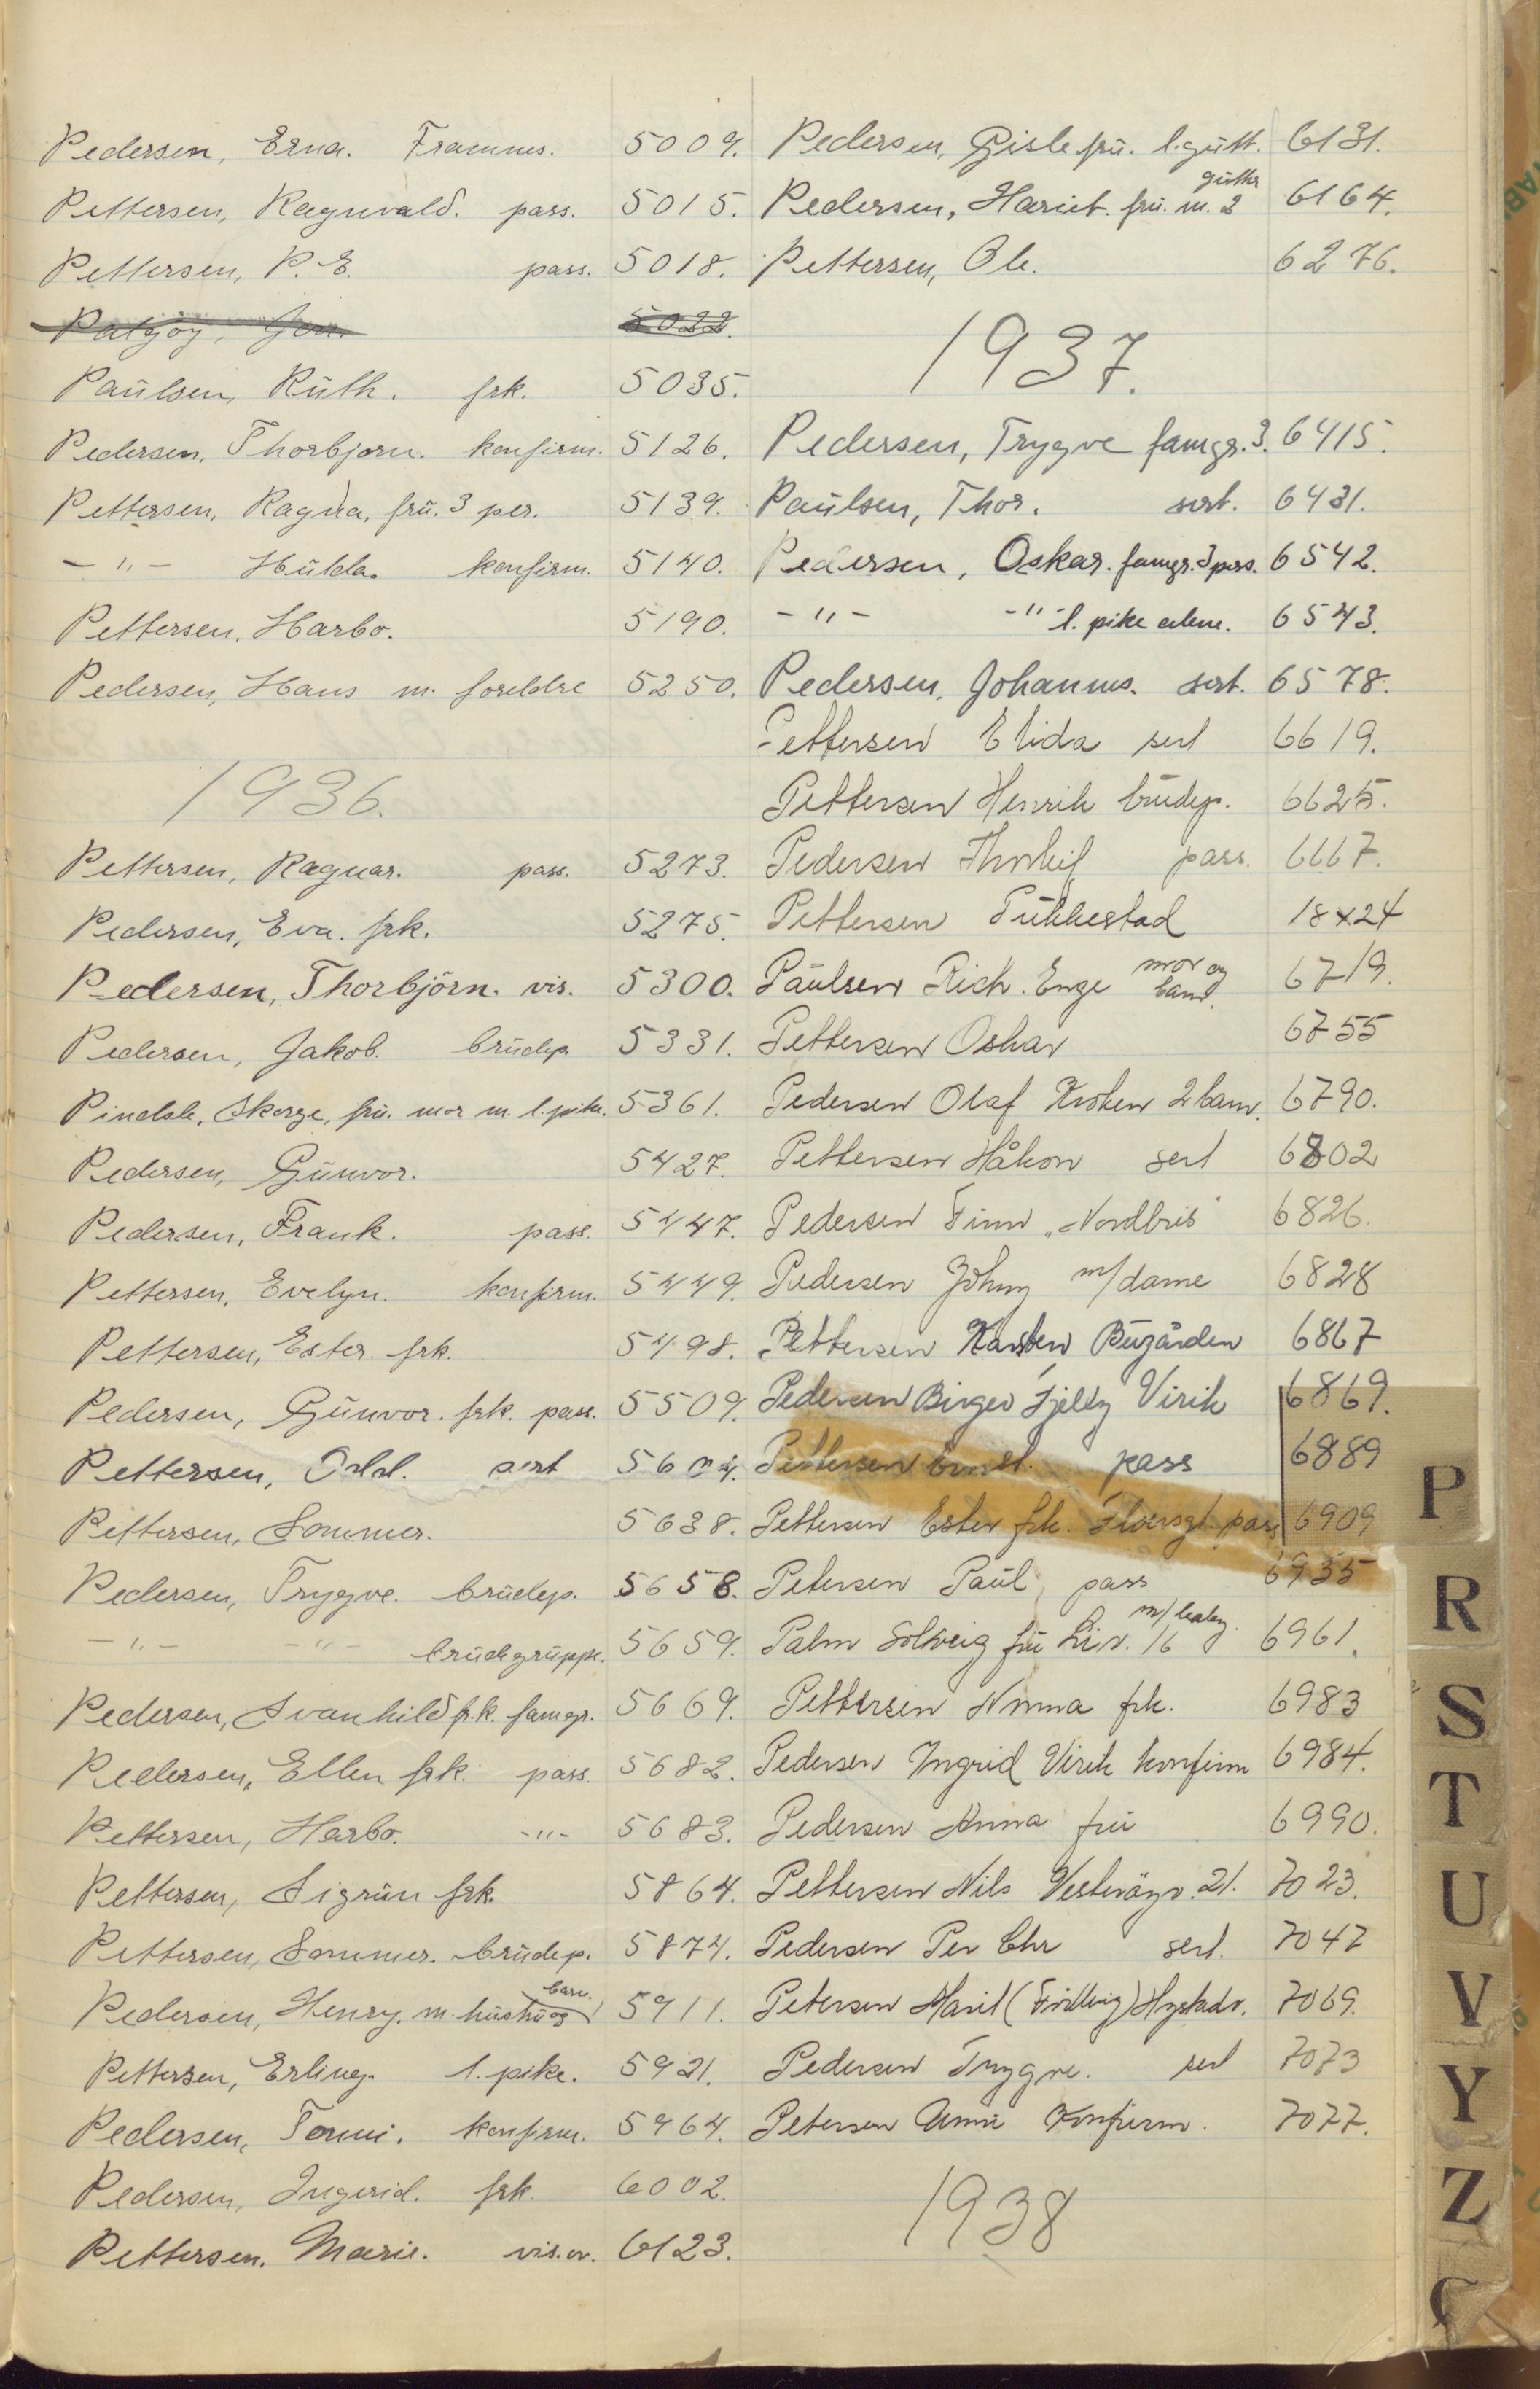 Pedersen, Erna. Framnes. 5009.
Pettersen, Ragnvald. pass. 5015.
Pettersen, P. E. pass. 5018.
5022.
Paülsen, Rüth. frk. 5035.
Pedersen, Thorbjørn. konfirm. 5126.
Pettersen, Ragna, frü. 3 per. 5139.
- " - Hülda. konfirm. 5140.
Pettersen, Harbo. 5190.
Pedersen, Hans m. foreldre 5250.
1936.
Pettersen, Ragnar. pass. 5273.
Pedersen, Eva. frk. 5275.
Pedersen, Thorbjörn. vis. 5300.
Pedersen, Jakob. brüdep. 5331.
Pindsle, Skorge, frü. mor m. l. pike. 5361.
Pedersen, Günvor. 5427.
Pedersen, Frank. pass. 5447.
Pettersen, Evelyn. konfirm. 5449.
Pettersen, Ester. frk. 5498.
Pedersen, Günvor. frk. pass. 5509.
Pettersen, Odd. sert 5604.
Pettersen, Sommer. 5638.
Pedersen, Trygve. brüdep. 5658.
- " - - " - brüdegrüppe. 5659.
Pedersen, Svanhild frk. famgr. 5669.
Pedersen, Ellen frk. pass. 5682.
Pettersen, Harbo. - " - 5683.
Pettersen, Sigrün frk. 5864.
Pettersen, Sommer. brüdep. 5874.
Pedersen, Henry. m. hüstrü og barn. 5911.
Pettersen, Erling. l. pike. 5921.
Pedersen, Tonni. konfirm. 5964.
Pedersen, Ingerid. frk. 6002.
Pettersen, Marie. vis. 6123.
Pedersen, Gisle frü. l. gütt. 6131.
Pedersen, Hariet. frü. m. 2 gütter 6164.
Pettersen, Ole. 6276.
1937.
Pedersen, Trygve famgr. 3. 6415.
Paülsen, Thor. sert. 6431.
Pedersen, Oskar. famgr. 3 pers. 6542.
- " - - " - l. pike alene. 6543.
Pedersen, Johannes. sert. 6578.
Pettersen Elida sert 6619.
Pettersen Henrik brüdep. 6625.
Pedersen Thorleif pass. 6667.
Pettersen 18x24
Paülsen Rich. Enge mor og barn. 6719.
Pettersen Oskar 6755
Pedersen Olaf Kroken 2 barn. 6790.
Pettersen Håkon sert 6802
Pedersen Finn "Nordbris" 6826.
Pedersen Johny m/dame 6828
Pettersen Karsten Bügården 6867
Pedersen Birger Virik 6869.
Pettersen Ernst. pass 6889
Pettersen Ester frk. pass 6909
Petersen Paül pass 6935
Palm Solveig frü Liv. 16 m/baby. 6961.
Pettersen Numa frk. 6983
Pedersen Ingrid Virik konfirm 6984.
Pedersen Anna frü 6990.
Pettersen Nils 21. 7023.
Pedersen Per Chr sert. 7047
Petersen Marit 7069.
Pedersen Trygve. sert 7073
Petersen Anni Konfirm. 7077.
1938
P
R
S
T
U
V
Y
Z